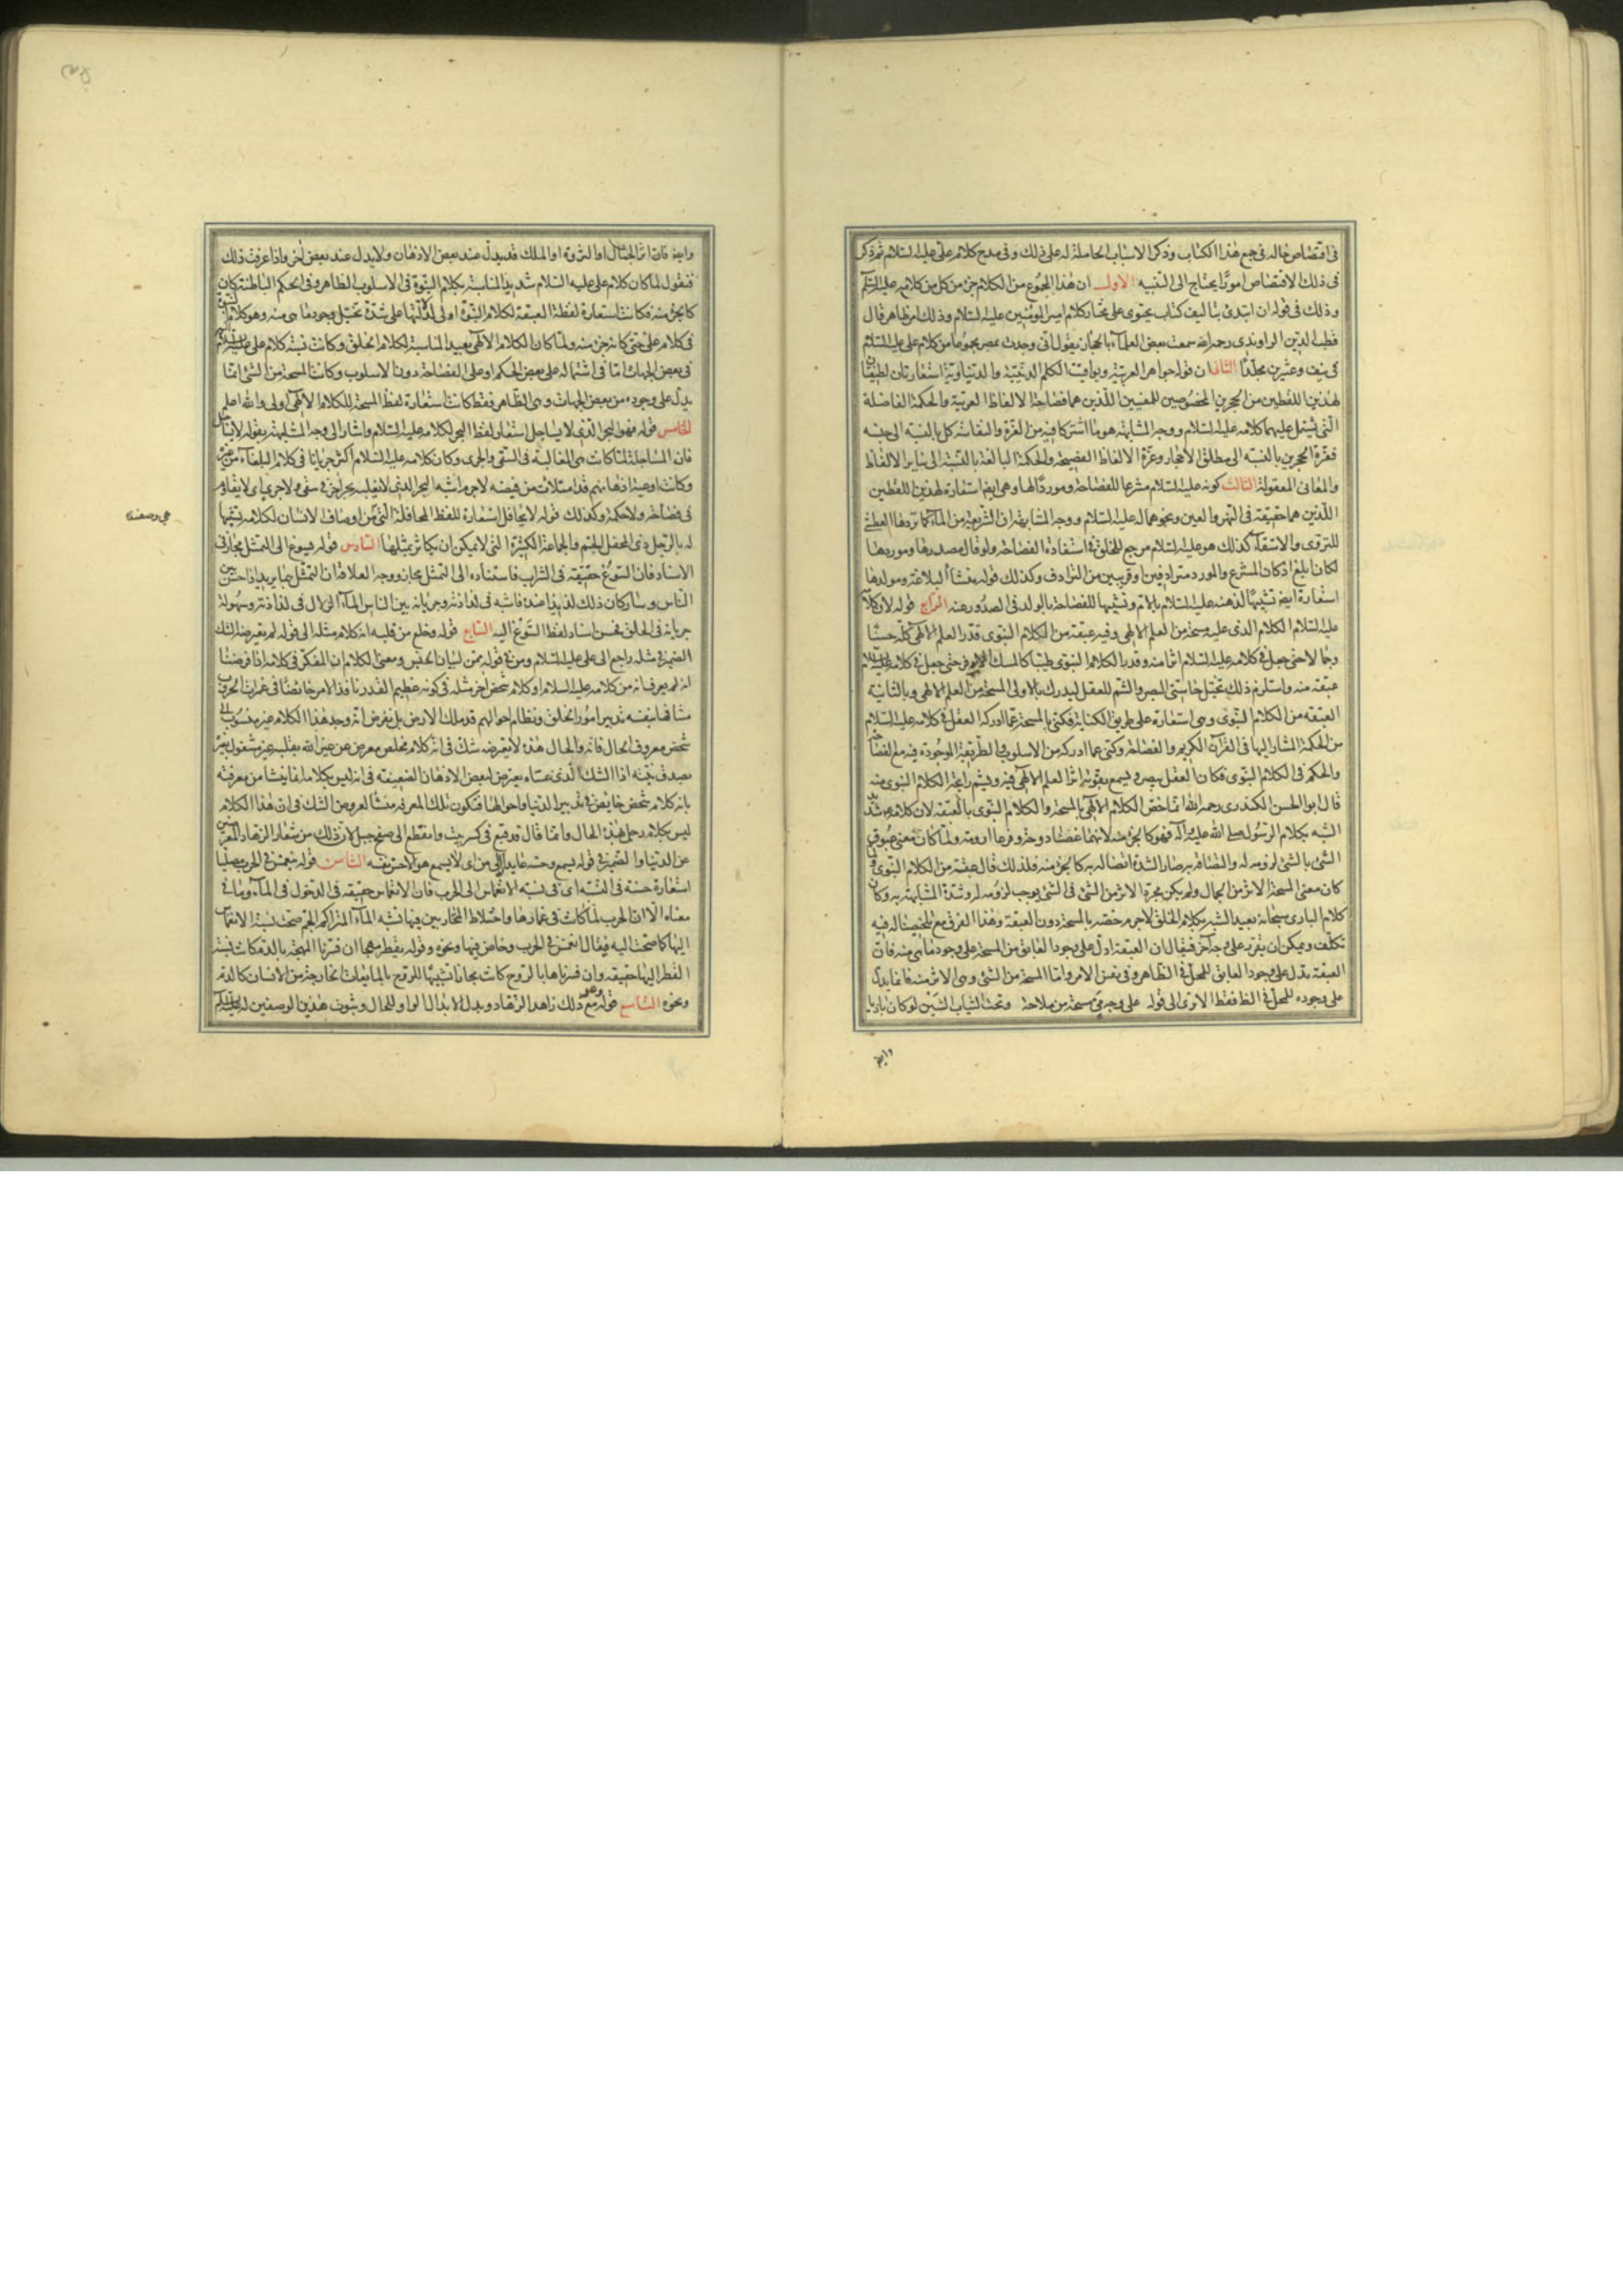 فى اقتصاص حاله فى جمع هذا الكتاب وذكر الاسباب الحاملة له على ذلك وفى مدح كلام على عليه السلام ثم ذكر
فى ذلك الاقتصاص امورًا يحتاج الى التنبيه الاول ان هذا المجموع من الكلام جزء من كل من كلامه عليه السلام
وذلك فى قوله ان ابتدئ بتأليف كتاب يحتوى على مختار كلام امير المؤمنين عليه السلام وذلك امر ظاهر قال
قطب الدين الراوندى رحمه الله سمعت بعض العلماء بالحجاز يقول انى وجدت بمصر مجموعا من كلام على عليه السلام
فى نيف وعشرين مجلدًا الثانى ان قوله جواهر العربية ويواقيت الكلم الدينية والدنياوية استعارتان لطيفتان
لهذين اللفظين من الحجرين المخصوصين للمعنيين اللذين هما فصاحة الالفاظ العربية والحكمة الفاضلة
التى يشتمل عليهما كلامه عليه السلام ووجه المشابهة هو ما اشتركا فيه من العزة والنفاسة كل بالنسبة الى جنسه
فعزة الحجرين بالنسبة الى مطلق الاحجار وعزة الالفاظ الفصيحة والحكمة البالغة بالنسبة الى سائر الالفاظ
والمعانى المعقولة الثالث كونه عليه السلام مشرعا للفصاحة وموردًا لها وهى ايضا استعارة لهذين اللفظين
اللذين هما حقيقة فى النهر والعين ونحوهما له عليه السلام ووجه المشابهة ان الشريعة من الماء كما تردها العطشى
للتروى والاستقاء كذلك هو عليه السلام مرجع للخلق فى استفادة الفصاحة ولو قال مصدرها وموردها
لكان ابلغ اذ كان المشرع والمورد مترادفين او قريبين من الترادف وكذلك قوله منشأ البلاغة ومولدها
استعارة ايضا تشبيها لذهنه عليه السلام بالام وتشبيها للفصاحة بالولد فى الصدور عنه الرابع قوله لان كلامه
عليه السلام الكلام الذى عليه مسحة من العلم الالهى وفيه عبقة من الكلام النبوى قدر العلم الالهى كله حسنًا
وجمالا حتى جعل فى كلامه عليه السلام اثرا منه وقدر الكلام النبوى طيبًا كالمسك الاذفر حتى جعل فى كلامه عليه السلام
عبقة منه واستلزم ذلك تخيل حاستى البصر والشم للعقل ليدرك بالاولى المسحة من العلم الالهى وبالثانية
العبقة من الكلام النبوى وهى استعارة على طريق الكناية فكنى بالمسحة عما ادركه العقل فى كلامه عليه السلام
من الحكمة المشار اليها فى القرآن الكريم والفصاحة وكنى عما ادركه من الاسلوب والطريقة الموجودة فيه مع الفصاحة
والحكم فى الكلام النبوى فكان العقل يبصر ويسمع بقوته اثر العلم الالهى فيه ويشم رائحة الكلام النبوى منه
قال ابو الحسن الكيذرى رحمه الله انما خص الكلام الالهى بالمسحة والكلام النبوى بالعبقة لان كلامه شديد
الشبه بكلام الرسول صلى الله عليه وآله فهو كالجزء منه لانهما غصنا دوحة وفرعا ارومة ولما كان معنى عبوق
الشئ بالشئ لزومه له والتصاقه به صار لشدة اتصاله به كالجزء منه فلذلك قال عبقة من الكلام النبوى ولما
كان معنى المسحة الاثر من الجمال ولم يكن مجرد الاثر من الشئ فى الشئ يوجب لزومه له وشدة المشابهة به وكان
كلام البارى سبحانه بعيد الشبه بكلام الخلق لا جرم خصه بالمسحة دون العبقة وهذا الفرق مع تلخيصنا له فيه
تكلف ويمكن ان يقرر على وجه آخر فيقال ان العبقة ادل على وجود العابق من المسحة على وجود ما هى منه فان
العبقة يدل على وجود العابق للمحل فى الظاهر وفى نفس الامر واما المسحة من الشئ وهى الاثر منه فانما يدل
على وجوده للمحل فى الظاهر فقط الا ترى الى قوله على وجه مى مسحة من ملاحة وتحت الثياب الشين لو كان باديا
وايضا
وايضا فان اثر الجمال او الثروة او الملك قد يدل عند بعض الاذهان ولا يدل عند بعض اخر واذا عرفت ذلك
فنقول لما كان كلام على عليه السلام شديد المناسبة بكلام النبوة فى الاسلوب الظاهر وفى الحكم الباطنة كان
كالجزء منه فكانت استعارة لفظة العبقة لكلام النبوة اولى لدلالتها على شدة تخيل وجود ما هى منه وهو كلام النبوة
فى كلام على حتى كانه جزء منه ولما كان الكلام الالهى بعيد المناسبة لكلام الخلق وكانت نسبة كلام على عليه السلام
فى بعض الجهات اما فى اشتماله على بعض الحكم او على الفصاحة دون الاسلوب وكانت المسحة من الشئ انما
يدل على وجوده من بعض الجهات وهى الظاهر فقط كانت استعارة لفظ المسحة للكلام الالهى اولى والله اعلم
الخامس قوله فهو البحر الذى لا يساجل استعار لفظ البحر لكلامه عليه السلام واشار الى وجه المشابهة بقوله لا يساجل
فان المساجلة لما كانت هى المغالبة فى السقى والجرى وكان كلامه عليه السلام اكثر جريانا فى كلام البلغاء من غيره
وكانت اوعية اذهانهم قد امتلات من فيضه لا جرم اشبه البحر الذى لا يغلبه بحر اخر فى سقى ولا جرى اى لا يقاوم
فى فصاحة ولا حكمة وكذلك قوله لا يحافل استعارة للفظ المحافلة التى من اوصاف الانسان لكلامه تشبيها
هى وصف
له بالرجل ذى المحفل الجم والجماعة الكثيرة التى لا يمكن ان يكاثر بمثلها السادس قوله فيسوغ الى التمثل مجاز فى
الاسناد فان السوغ حقيقة فى الشراب فاسناده الى التمثل مجاز ووجه العلاقة ان التمثل بما يريد اذا حسن بين
الناس وساركان ذلك لذيذا عنده فاشبه فى لذاذته وجريانه بين الناس الماء الزلال فى لذاذته وسهولة
جريانه فى الحلق فحسن اسناد لفظ السوغ اليه السابع قوله وخلع من قلبه انه كلام مثله الى قوله لم يعترضه الشك
الضمير فى مثله راجع الى على عليه السلام ومن فى قوله ممن لبيان الجنس ومعنى الكلام ان المفكر فى كلامه اذا فرضنا
انه لم يعرف انه من كلامه عليه السلام او كلام شخص اخر مثله فى كونه عظيم القدر نافذ الامر خائضًا فى غمرات الحروب
مشافها بنفسه تدبير امور الخلق ونظام احوالهم قد ملك الارض بل نفرض انه وجد هذا الكلام غير منسوب الى
شخص معروف الحال فانه والحال هذه لا يعترضه شك فى انه كلام مخلص معرض عن غير الله بقلبه غير مشغول بغير
بصدق نيته اذا الشك الذى عساه يعرض لبعض الاذهان الضعيفة فى انه ليس بكلامه انما ينشا من معرفته
بانه كلام شخص خايض فى تدبير الدنيا واحوالها فتكون تلك المعرفة منشأ لعروض الشك فى ان هذا الكلام
ليس بكلام رجل هذه الحال وانما قال قد قبع فى كسر بيت وانقطع الى سفح جبل لان ذلك من شعار الزهاد المعرضين
عن الدنيا والضمير فى قوله يسمع وحسه عايد الى من اى لا يسمع هو الا حس نفسه الثامن قوله ينغمس فى الحرب مصلتا
استعارة حسنة فى النسبة اى فى نسبة الانغماس الى الحرب فان الانغماس حقيقة فى الدخول فى الماء وما فى
معناه الا ان الحرب لما كانت فى غمارها واختلاط المتحاربين فيها تشبه الماء المتراكم الجم صحت نسبة الانغماس
اليها كما صحت اليه فيقال انغمس فى الحرب وخاض فيها ونحوه وقوله يقطر مهجا ان فسرنا المهجة بالدم كانت نسبة
القطر اليها حقيقة وان فسرناها بالروح كانت مجازا تشبيها للروح بالمايعات الخارجة من الانسان كالدم
ونحوه التاسع قوله وهو مع ذلك زاهد الزهاد وبدل الابدال الواو للحال وثبوت هذين الوصفين له عليه السلام